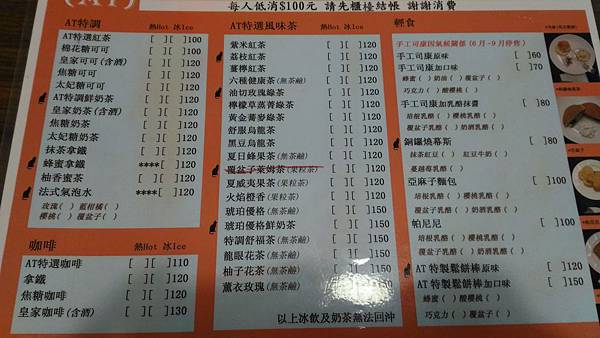 (AT)
每人低消$100元 請先櫃檯結帳 謝謝消費
AT特調 熱Hot 冰Ice
AT特選紅茶 [ ][ ]100
棉花糖可可 [ ][ ]100
皇家可可(含酒) [ ][ ]120
焦糖可可 [ ][ ]120
太妃糖可可 [ ][ ]120
AT特調鮮奶茶 [ ][ ]120
皇家奶茶(含酒) [ ][ ]120
焦糖奶茶 [ ][ ]120
太妃糖奶茶 [ ][ ]120
抹茶拿鐵 [ ][ ]120
蜂蜜拿鐵 ****[ ]120
柚香蜜茶 [ ][ ]120
法式氣泡水 ****[ ]120
玫瑰( ) 藍柑橘( )
櫻桃( ) 覆盆子( )
咖啡 熱Hot 冰Ice
AT特選咖啡 [ ][ ]110
拿鐵 [ ][ ]120
焦糖咖啡 [ ][ ]120
皇家咖啡(含酒) [ ][ ]130
AT特選風味茶 熱Hot 冰Ice
紫米紅茶 [ ][ ]120
荔枝紅茶 [ ][ ]120
薑檸紅茶 [ ][ ]120
六種健康茶(無茶鹼) [ ][ ]120
油切玫瑰綠茶 [ ][ ]120
檸檬草蒸菁綠茶 [ ][ ]120
黃金蕎麥綠茶 [ ][ ]120
舒服烏龍茶 [ ][ ]120
黑豆烏龍茶 [ ][ ]120
夏日蜂果茶(無茶鹼) [ ][ ]120
覆盆子萊姆茶(果粒茶) [ ][ ]120
夏威夷果茶(果粒茶) [ ][ ]120
火焰橙香(果粒茶) [ ][ ]120
琥珀優格(無茶鹼) [ ][ ]120
琥珀優格鮮奶茶 [ ][ ]150
特調舒福茶(無茶鹼) [ ][ ]150
龍眼花茶(無茶鹼) [ ][ ]150
柚子花茶(無茶鹼) [ ][ ]150
薰衣玫瑰(無茶鹼) [ ][ ]150
以上冰飲及奶茶無法回沖
輕食
手工司康因氣候關係(6月~9月停售)
手工司康原味 [ ]60
手工司康加口味 [ ]70
蜂蜜( ) 奶油( ) 覆盆子( )
巧克力( ) 酸櫻桃( )
手工司康加乳酪抹醬 [ ]80
培根乳酪( ) 櫻桃乳酪( )
覆盆子乳酪( ) 奶酒乳酪( )
銅鑼燒慕斯 [ ]80
抹茶紅豆( ) 紅豆牛奶( )
蔓越莓乳酪( )
亞麻子麵包 [ ]100
培根乳酪( ) 櫻桃乳酪( )
覆盆子乳酪( ) 奶酒乳酪( )
帕尼尼 [ ]100
培根乳酪( ) 櫻桃乳酪( )
覆盆子乳酪( ) 奶酒乳酪( )
AT 特製鬆餅棒原味 [ ]120
AT 特製鬆餅棒加口味 [ ]120
蜂蜜( ) 酸櫻桃( )
巧克力( ) 覆盆子( )